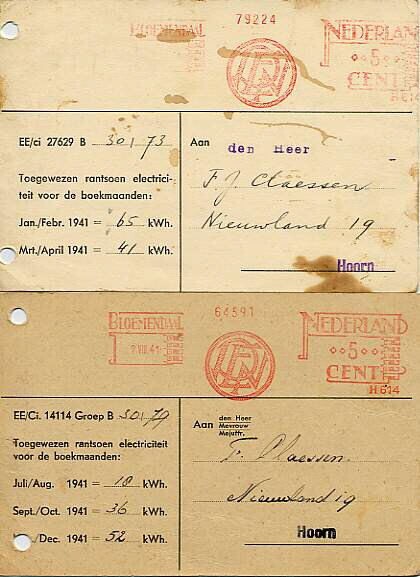 79224
BLOEMENDAAL
NEDERLAND
5
CENT
H 614
EE/ci 27629 B 30173
Aan den Heer
Toegewezen rantsoen electrici-
teit voor de boekmaanden:
F. J. Claessen
Jan./Febr. 1941 = 65 kWh.
Nieuwland 19
Mrt./April 1941 = 41 kWh.
Hoorn
64591
BLOEMENDAAL
NEDERLAND
2 VIII 41
5
CENT
H 614
EE/Ci. 14114 Groep B 30179
Aan den Heer
Mevrouw
Mejuffr.
Toegewezen rantsoen electriciteit
voor de boekmaanden:
F. Claessen
Juli/Aug. 1941 = 18 kWh.
Nieuwland 19
Sept./Oct. 1941 = 36 kWh.
/Dec. 1941 = 52 kWh.
Hoorn